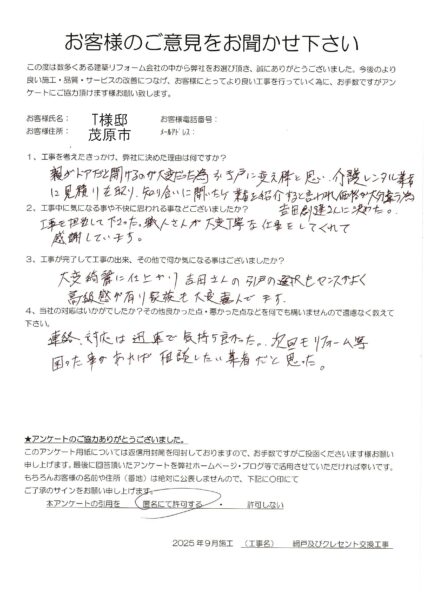 お客様のご意見をお聞かせ下さい
この度は数多くある建築リフォーム会社の中から弊社をお選び頂き、誠にありがとうございました。今後のより
良い施工・品質・サービスの改善につなげ、お客様にとってより良い工事を行っていく為に、お手数ですがアン
ケートにご協力頂けます様お願い致します。
お客様氏名： T様邸 お客様電話番号：
お客様住所： 茂原市 メールアドレス：
1、工事を考えたきっかけ、弊社に決めた理由は何ですか？
親がドアだと開けるのが大変だった為 引き戸に変え様と思い、介護レンタル業者
に見積りを取り、知り合いに聞いたら 業者を紹介すると言われ価格が大分違う為
吉田創建さんに決めた。
2、工事中に気になる事や不快に思われる事などございましたか？
工事を担当して下さった職人さんが大変丁寧な仕事をしてくれて
感謝しています。
3、工事が完了して工事の出来、その他で何か気になる事はございましたか？
大変綺麗に仕上がり 吉田さんの引戸の選択もセンスがよく
高級感が有り家族も大変喜んでます。
4、当社の対応はいかがでしたか？その他良かった点・悪かった点などを何でも構いませんので遠慮なく教えて
下さい。
連絡、対応は迅速で気持ち良かった。次回もリフォーム等
困った事があれば 相談したい業者だと思った。
★アンケートのご協力ありがとうございました。
このアンケート用紙については返信用封筒を同封しておりますので、お手数ですがご投函くださいます様お願い
申し上げます。最後に回答頂いたアンケートを弊社ホームページ・ブログ等で活用させていただければ幸いです。
もちろんお客様の名前や住所（番地）は絶対に公表しませんので、下記に〇印にて
ご了承のサインをお願い申し上げます。
本アンケートの引用を 匿名にて許可する ・ 許可しない
2025年9月施工 （工事名） 網戸及びクレセント交換工事